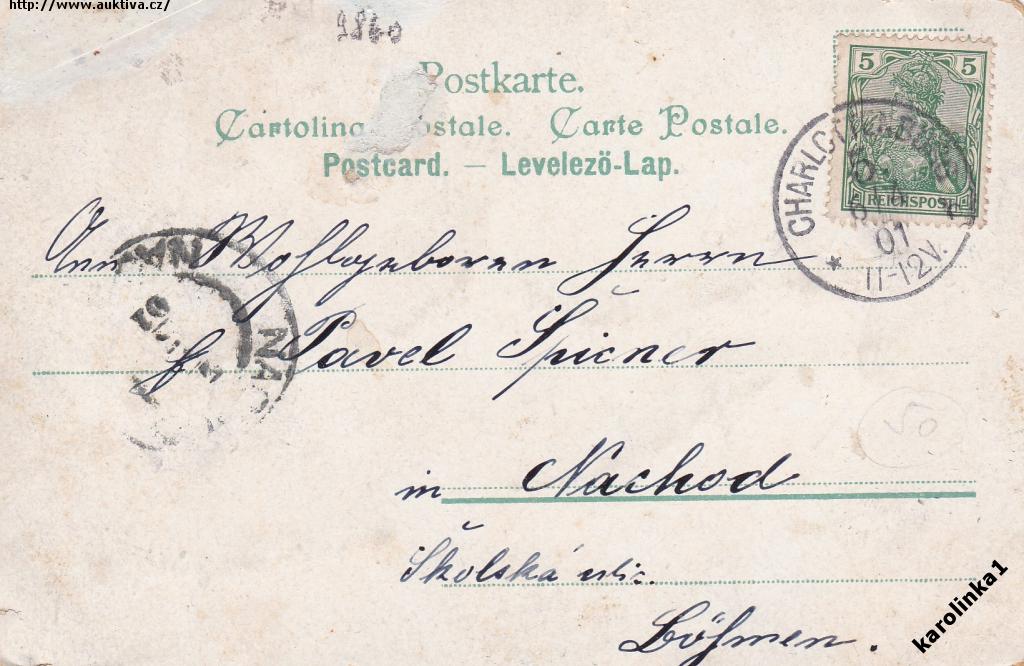 http://www.auktiva.cz/
Postkarte.
Cartolina Postale. Carte Postale.
Postcard. — Levelező-Lap.
5 5
REICHSPOST
CHARLOTTENBURG
01
* 11-12V.
An Wohlgeboren Herrn
Pavel Spicner
NAC
01
in Nachod
50
Školská ulic.
Böhmen.
karolinka1